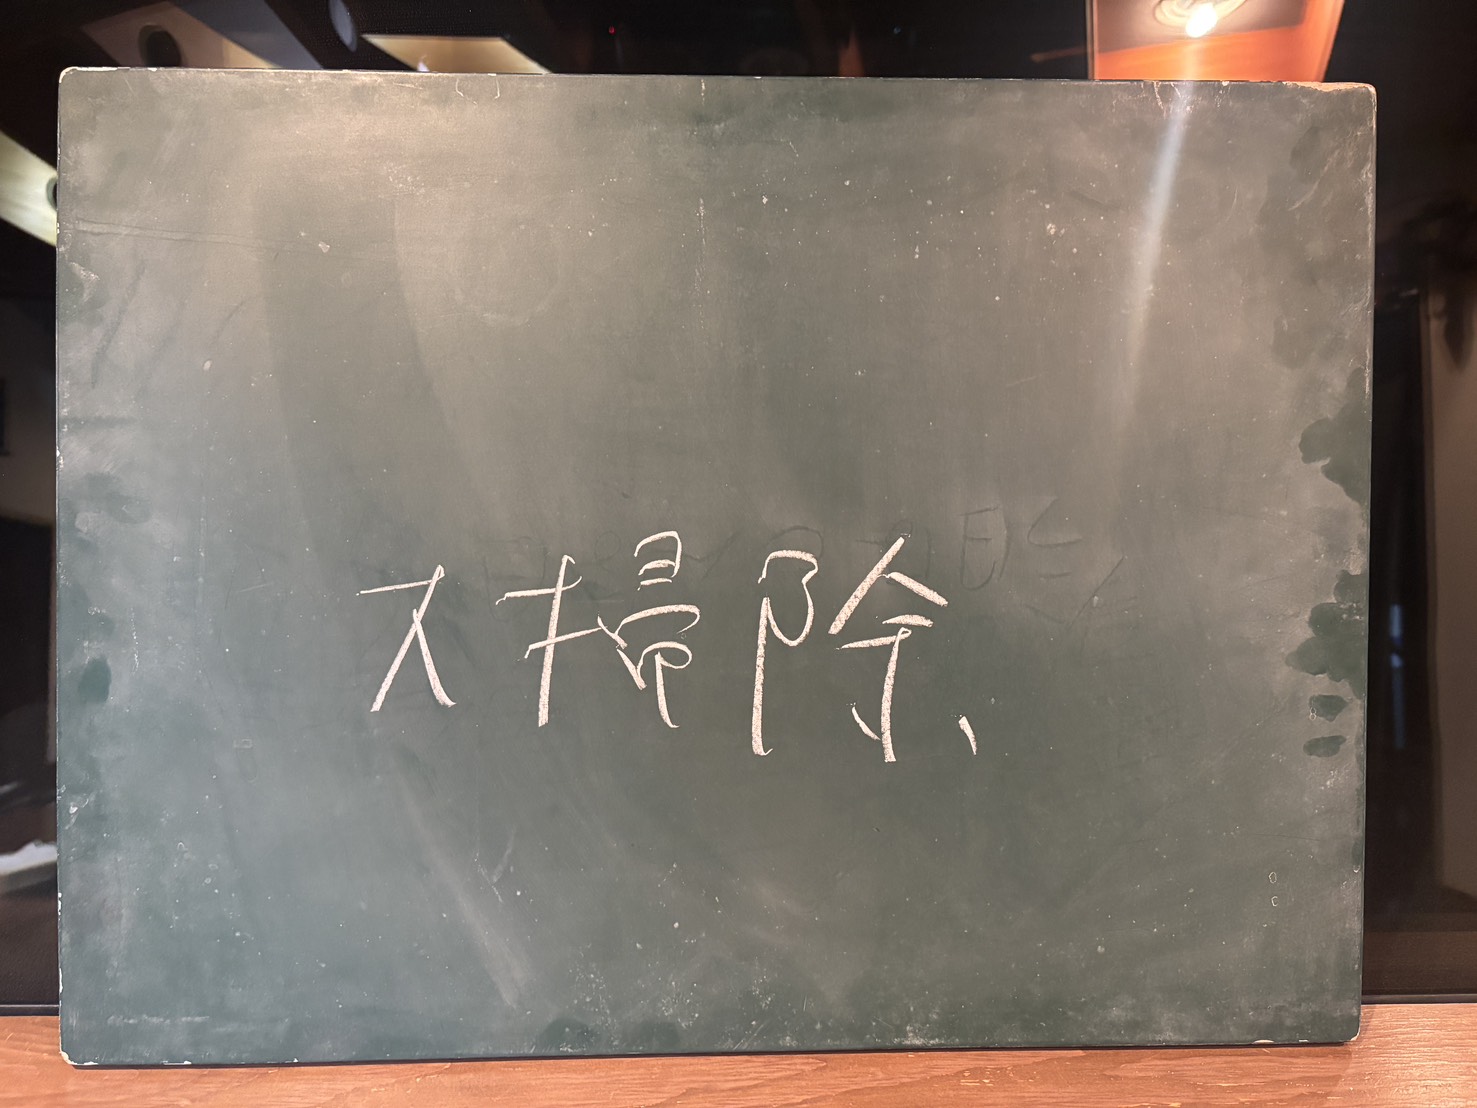 大掃除